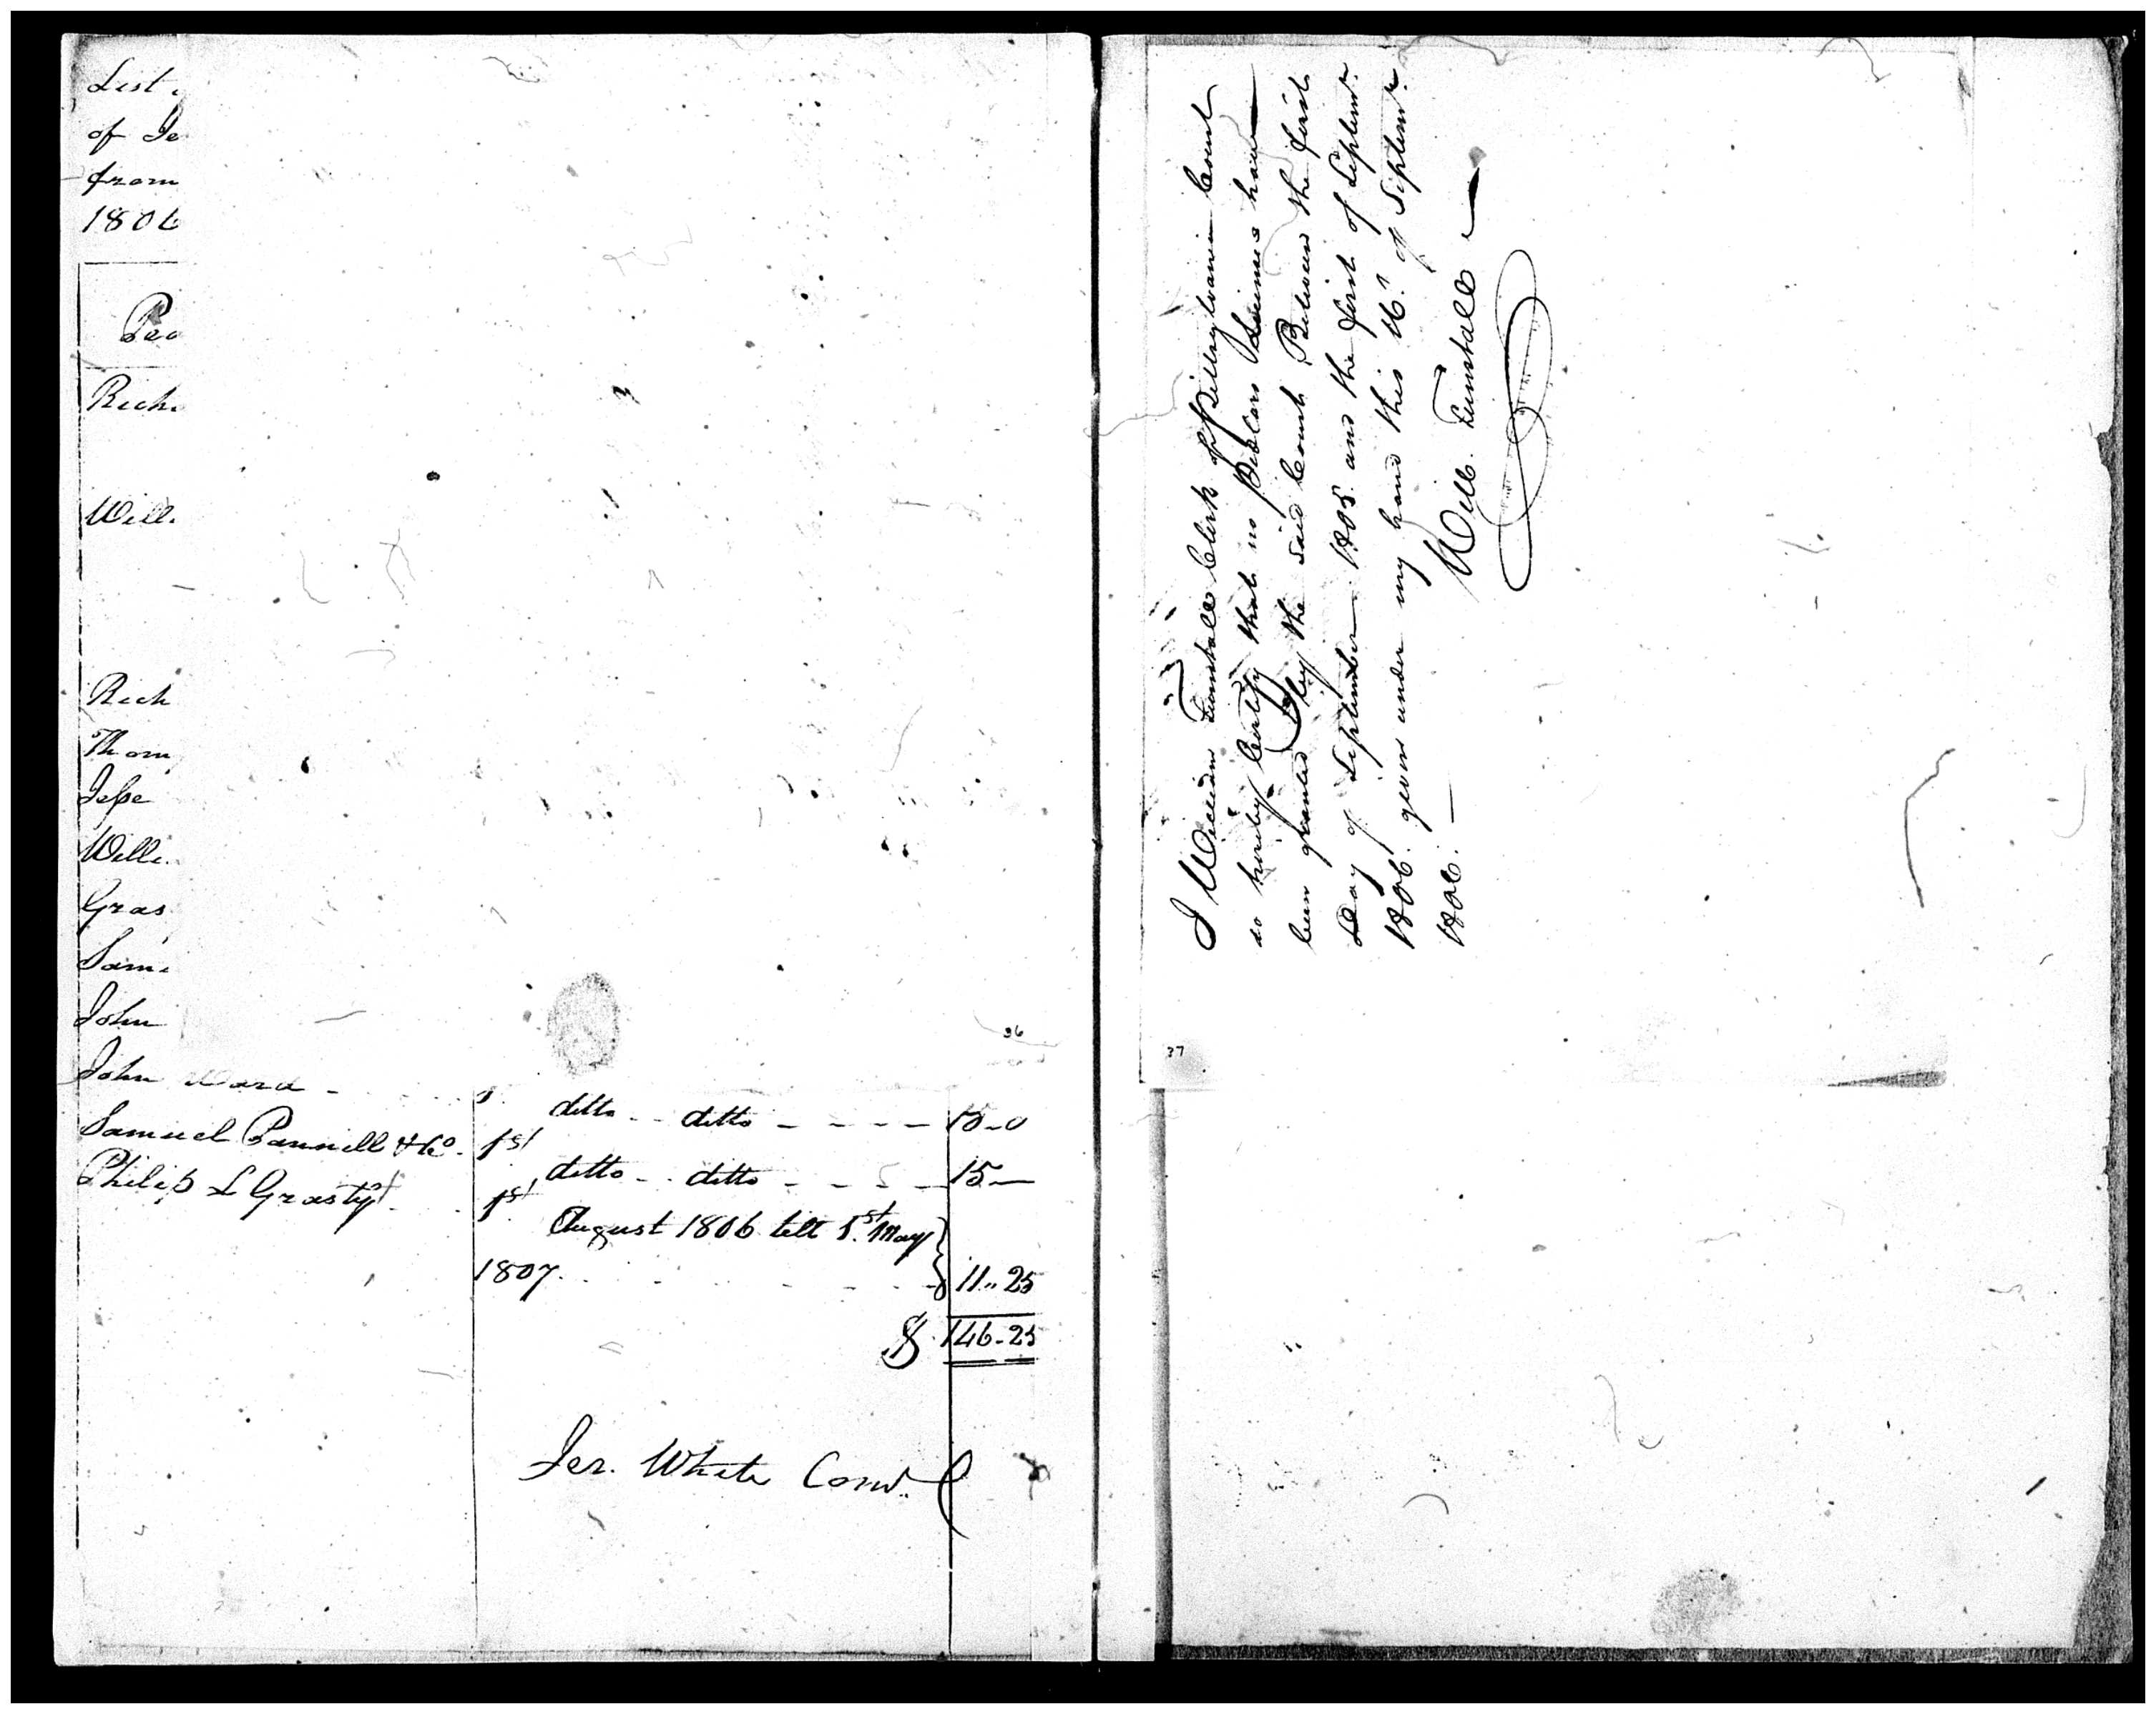 List
of Je
from
1806
Peo
Rich
Will
Rich
Thom
Jesse
Willi
Gras
Sam
John
36
John Ward - 1 ditto - - ditto - - - - 15-0
Samuel Pannill & Co. 1st ditto - - ditto - - - - 15-
Philip L Grasty 1st August 1806 till 1st May
1807. 11..25
$ 146-25
Jer. White Comr.
I William Tunstall Clerk of Pittsylvania Court
do hereby Certify that no Pedlars Licenses have
been granted by the said Court Between the first
Day of September 1805 and the first of Septemr.
1806. given under my hand this 16th of Septemr.
1806. —
Will. Tunstall
37